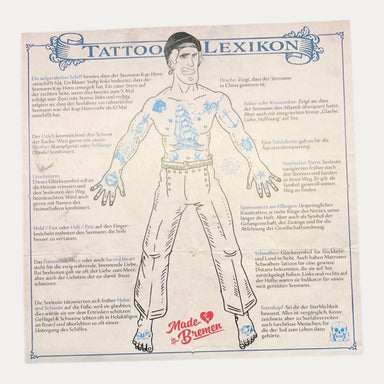 TATTOO LEXIKON
Ein aufgetakeltes Schiff beweist, dass der Seemann Kap Horn
umschifft hat. Ein blauer Stern links bedeutet, dass der
Seemann Kap Horn umsegelt hat. Ein roter Stern auf
der rechten Seite, wenn dies bereits zum 5. Mal
erfolgt war. Zwei rote Sterne links und rechts
zeigten an, dass der Seefahrer ein ruhmreicher
Seemann war, der Kap Horn mehr als 10 Mal
umschifft hat.
Drache: Zeigt, dass der Seemann
in China gewesen ist.
Anker oder Kreuzanker: Zeigt an, dass
der Seemann den Atlantik überquert hatte.
Aber auch mit integriertem Kreuz „Glaube,
Liebe, Hoffnung" auf See.
Der Dolch kennzeichnet den Schwur
der Rache. Wird gerne mit einem
Panther (Kampfgeist) oder Schlange
kombiniert.
Eine Schildkröte gab es für die
Äquatorüberquerung.
Leuchtturm:
Dieses Glückssymbol soll an
die Heimat erinnern und
den Seeleuten den Weg
heimleuchten. Wird auch
gerne mit Namen des
Heimathafens kombiniert.
Nautischer Stern: Seeleute
navigierten früher nach
den Sternen und fanden
so ihren Weg. Er gilt als
Symbol, generell seinen
Weg zu finden.
Spinnennetz am Ellbogen: Ursprüngliches
Knasttattoo, je mehr Ringe des Netzes, umso
länger die Haft. Aber auch als Symbol der
Gefangenschaft, der Zwänge und für die
Ablehnung der Gesellschaftsordnung.
Hold / Fast oder Halt / Fest auf den Finger-
knöcheln mahnten den Seemann, die Seile
besser zu vertauen.
Das flammende Herz oder auch Sacred Heart
steht für die ewig währende, brennende Liebe.
Bei Seeleuten galt sie oft der Liebe zum Meer,
aber auch der Liebsten, der sie damit Treue
schworen.
Schwalben: Glückssymbol für Rückkehr
und Land in Sicht. Auch haben Matrosen
Schwalben Tattoos für eine gewisse
Distanz bekommen, die sie auf See
zurückgelegt haben. Links und rechts auf
der Hüfte waren sie Indikator für einen
weit gereisten Seemann.
Die Seeleute tätowierten sich früher Hahn
und Schwein auf die Füße, weil sie glaubten,
dies würde sie vor dem Ertrinken schützen.
Geflügel & Schweine lebten oft in Holzkäfigen
an Board und überlebten so oft einen
Untergang des Schiffes.
Totenkopf: Sei dir der Sterblichkeit
bewusst. Alles ist vergänglich. Kenn-
zeichnete aber zu Seeräuberzeiten
auch furchtlose Menschen, für
die der Tod zum Leben dazu
gehörte.
Made
in
Bremen